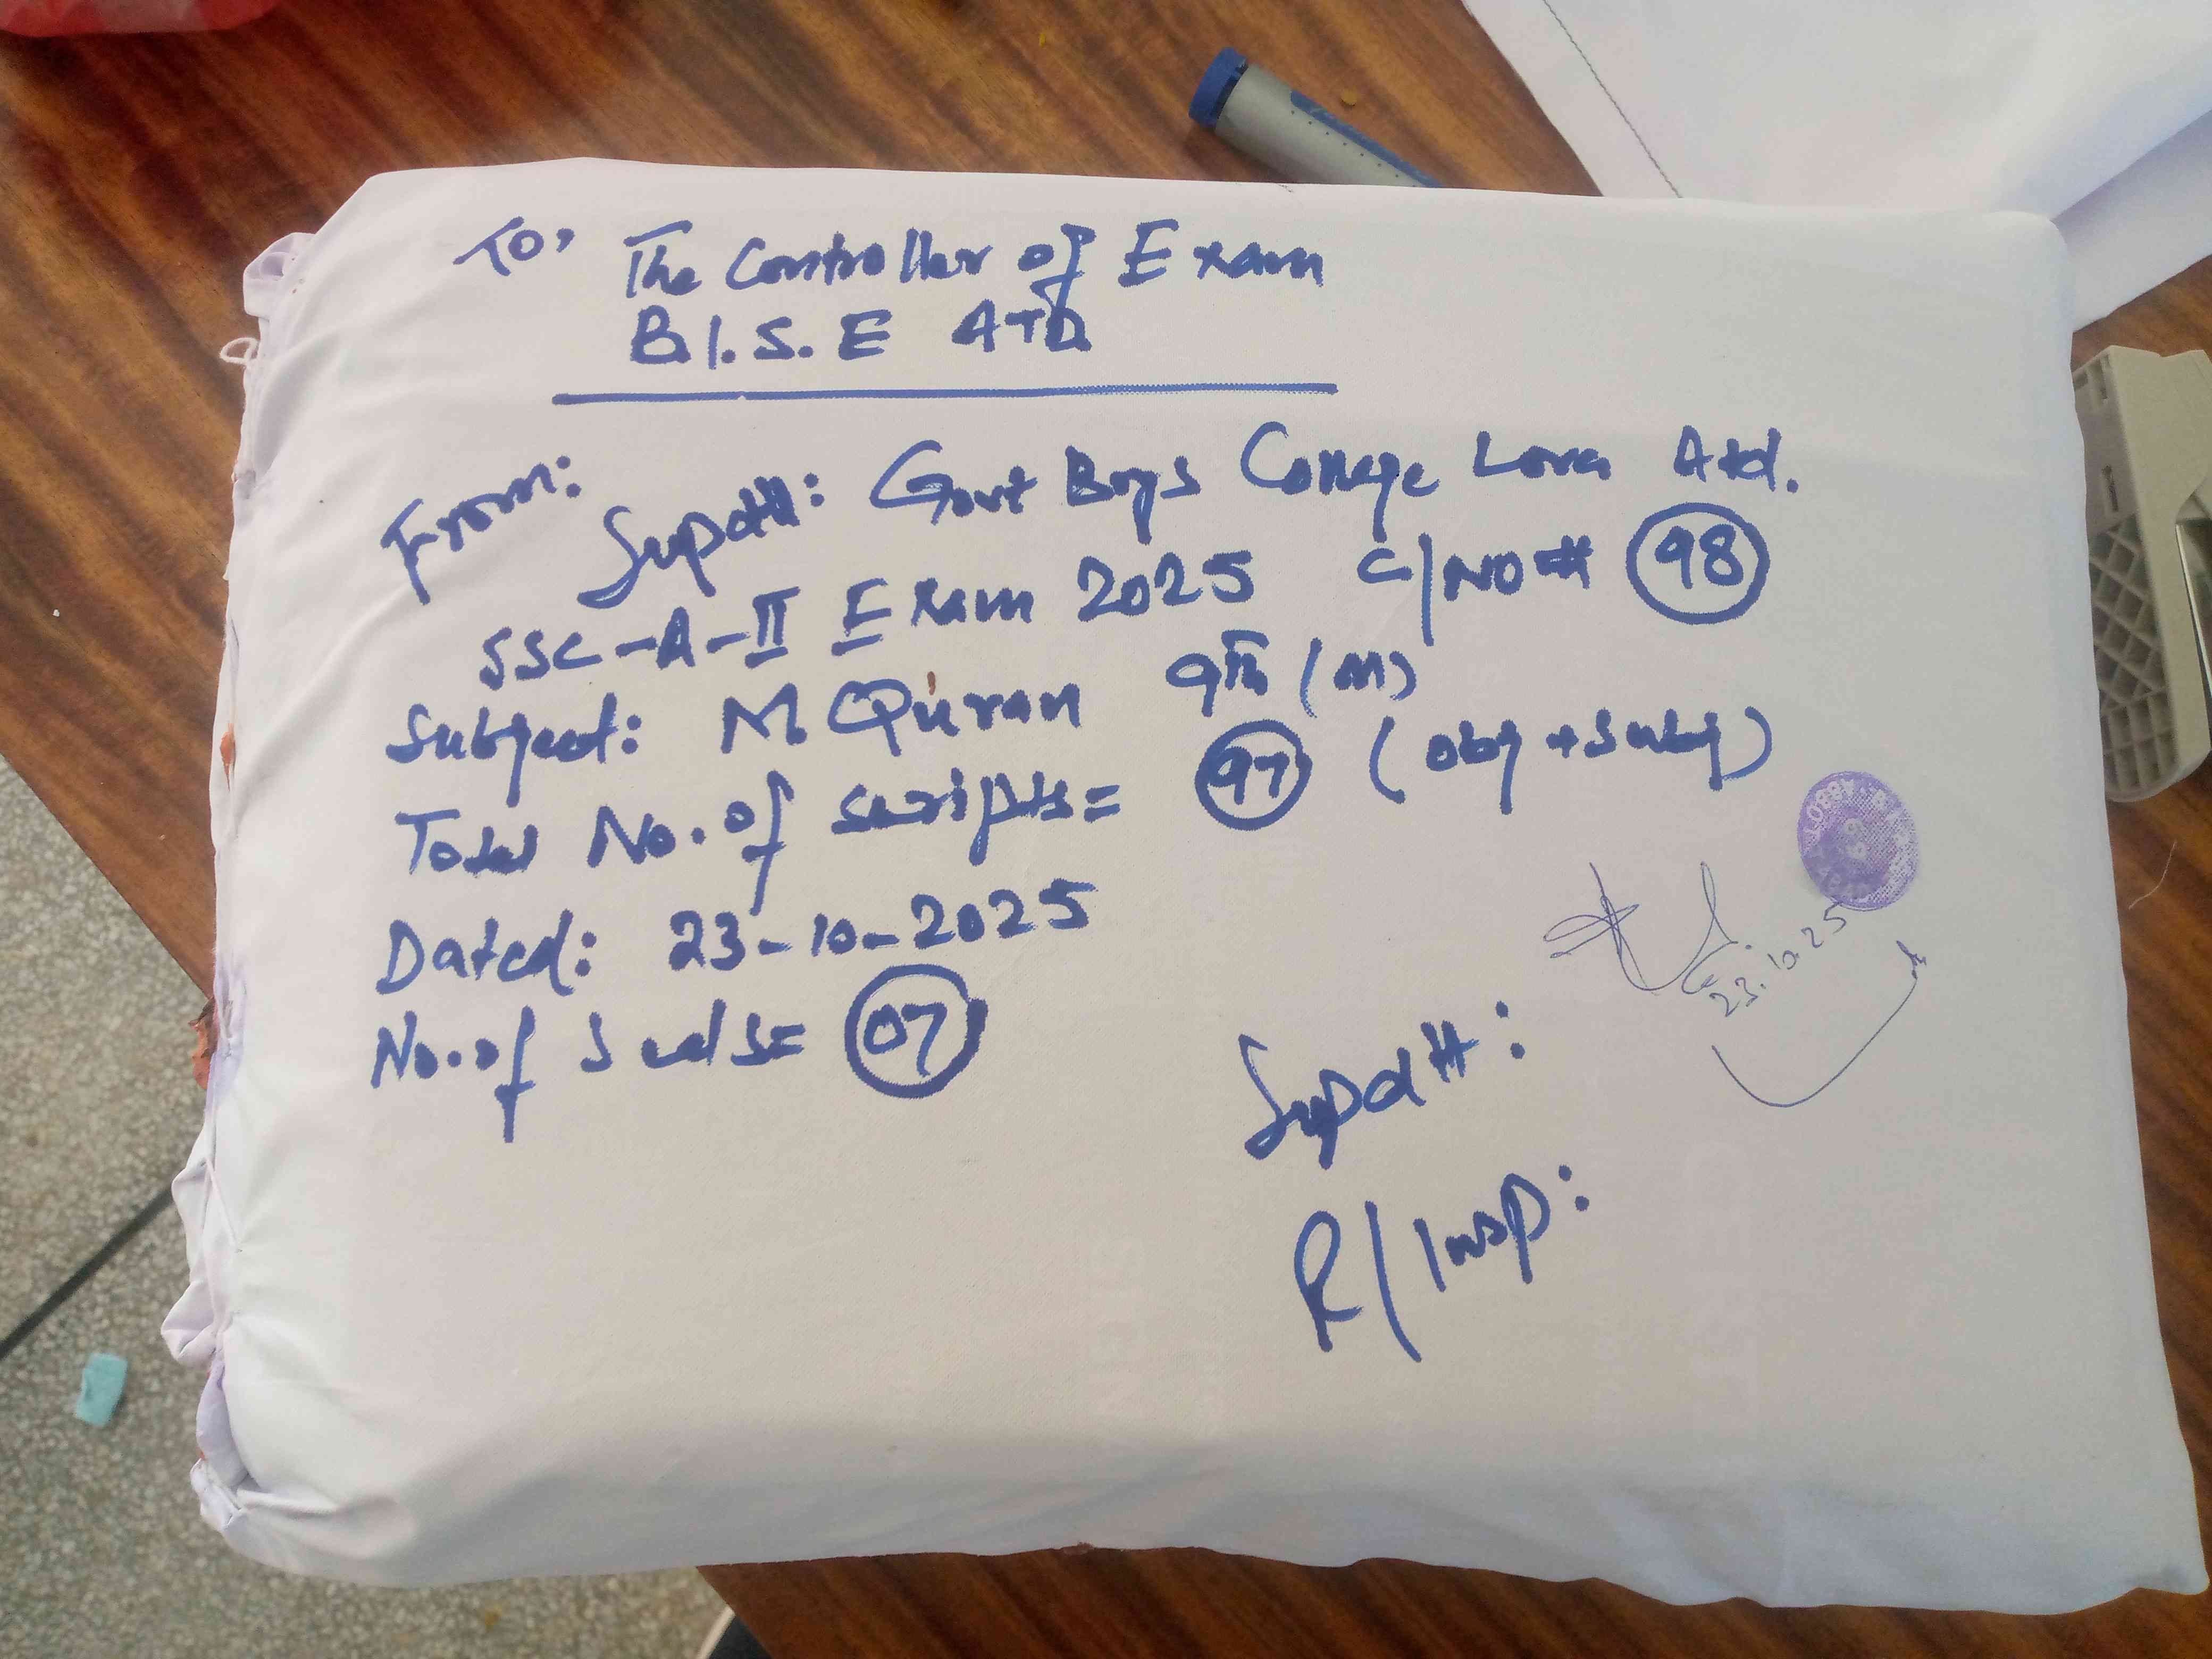 To, The Controller of Exam
B.I.S.E ATD
From:
Supdtt: Govt Boys College Lora Atd.
SSC-A-II Exam 2025 C/NO# 98
Subject: M Quran 9th (M)
Total No. of scripts= 97 (obj + subj)
Dated: 23-10-2025
No. of Seals= 07
23.10.25
Supdtt:
R/Insp: